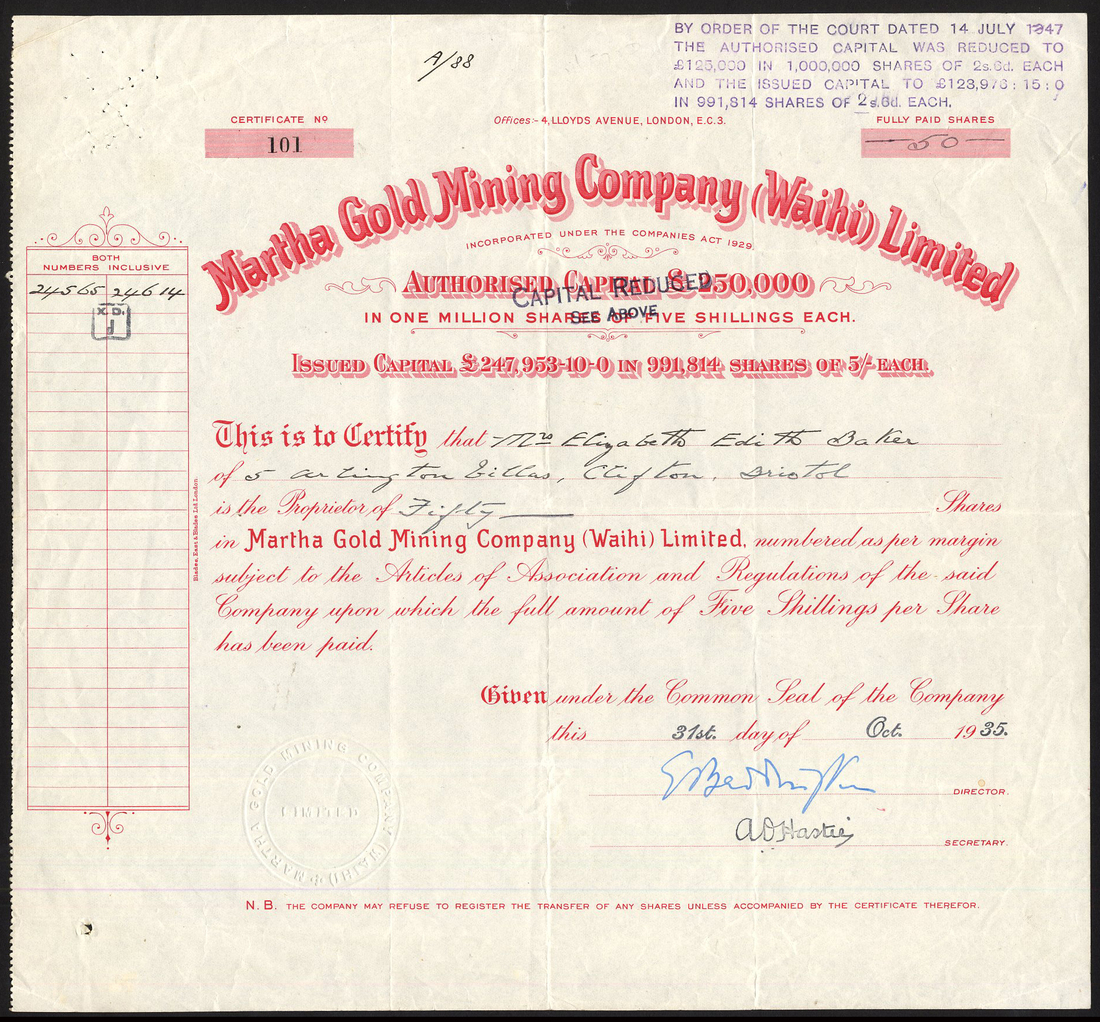 BY ORDER OF THE COURT DATED 14 JULY 1947
THE AUTHORISED CAPITAL WAS REDUCED TO
£125,000 IN 1,000,000 SHARES OF 2s.6d. EACH
AND THE ISSUED CAPITAL TO £123,976:15:0
IN 991,814 SHARES OF 2s.6d. EACH.
A/88
CERTIFICATE Nº
101
Offices:- 4, LLOYDS AVENUE, LONDON, E.C.3.
FULLY PAID SHARES
50
Martha Gold Mining Company (Waihi) Limited
INCORPORATED UNDER THE COMPANIES ACT 1929.
AUTHORISED CAPITAL £250,000
CAPITAL REDUCED
SEE ABOVE
IN ONE MILLION SHARES OF FIVE SHILLINGS EACH.
ISSUED CAPITAL £247,953-10-0 IN 991,814 SHARES OF 5/- EACH.
BOTH
NUMBERS INCLUSIVE
24565 24614
X.D.
This is to Certify that Mrs Elizabeth Edith Baker
of 5 Arlington Villas, Clifton, Bristol
is the Proprietor of Fifty Shares
in Martha Gold Mining Company (Waihi) Limited, numbered as per margin
subject to the Articles of Association and Regulations of the said
Company upon which the full amount of Five Shillings per Share
has been paid.
Blades, East & Blades, Ltd. London.
Given under the Common Seal of the Company
this 31st. day of Oct. 1935.
DIRECTOR.
A D Hastie
SECRETARY.
MARTHA GOLD MINING COMPANY (WAIHI)
LIMITED
N.B. THE COMPANY MAY REFUSE TO REGISTER THE TRANSFER OF ANY SHARES UNLESS ACCOMPANIED BY THE CERTIFICATE THEREFOR.